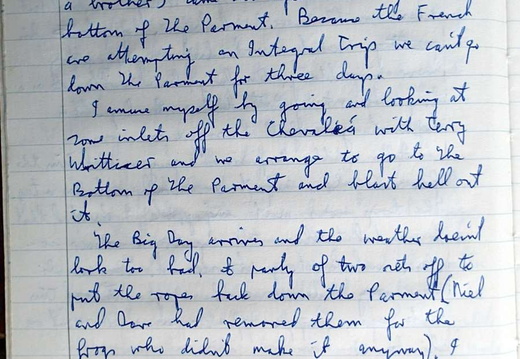 a brother) came
bottom of the Parment. Because the French
are attempting an Integral Trip we can't go
down the Parment for three days.
I amuse myself by going and looking at
some inlets off the Chevalier with Terry
Whittaker and we arrange to go to the
Bottom of the Parment and blast hell out
it.
The Big Day arrives and the weather doesn't
look too bad. A party of two sets off to
put the ropes back down the Parment (Niel
and Dave had removed them for the
frogs who didn't make it anyway). I